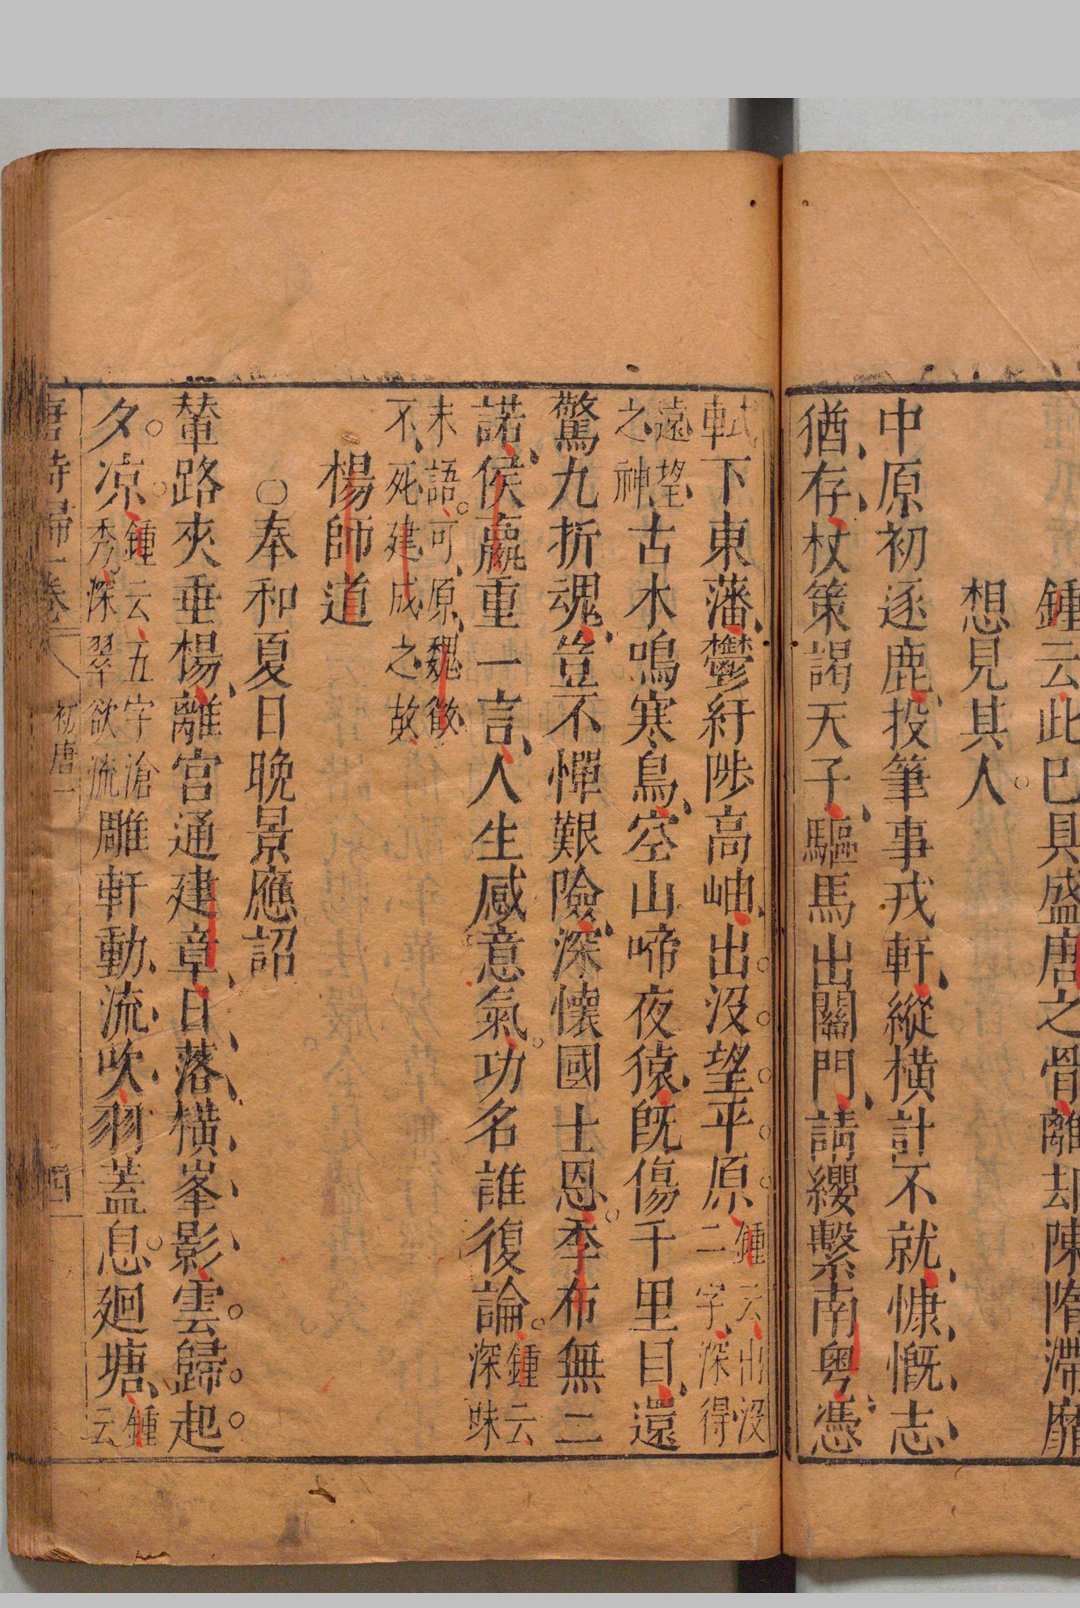 鍾云此已具盛唐之骨離却陳隋滯靡
想見其人
中原初逐鹿投筆事戎軒縱橫計不就慷慨志
猶存杖策謁天子驅馬出關門請纓繫南粤憑
軾下東藩鬱紆陟高岫出沒望平原鍾云出沒二字深得
遠望之神古木鳴寒鳥空山啼夜猿旣傷千里目還
驚九折魂豈不憚艱險深懷國士恩季布無二
諾侯嬴重一言人生感意氣功名誰復論鍾云深味
末語可原魏徵不死建成之故
楊師道
○奉和夏日晚景應詔
輦路夾垂楊離宮通建章日落橫峯影雲歸起
夕凉鍾云五字滄秀深翠欲流雕軒動流吹羽蓋息廻塘鍾云
唐詩歸一卷 初唐一 四